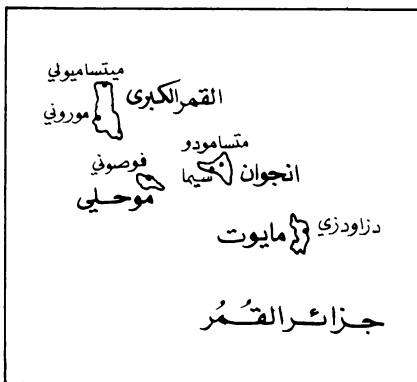 ميتساميولي
القمر الكبرى
موروني
متسامودو
فوصوني
انجوان
سيما
موحلي
دزاودزي
مايوت
جزائر القُمُر